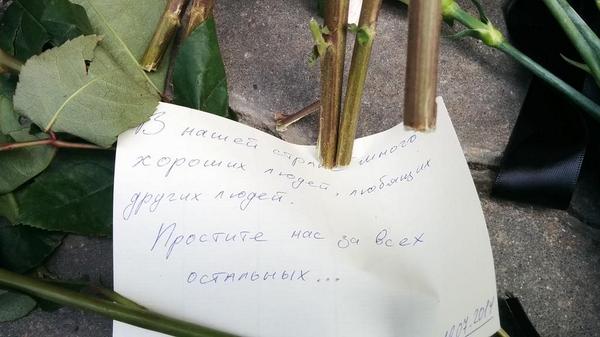 В нашей стра много
хороших людей, любящих
других людей.
Простите нас за всех
остальных...